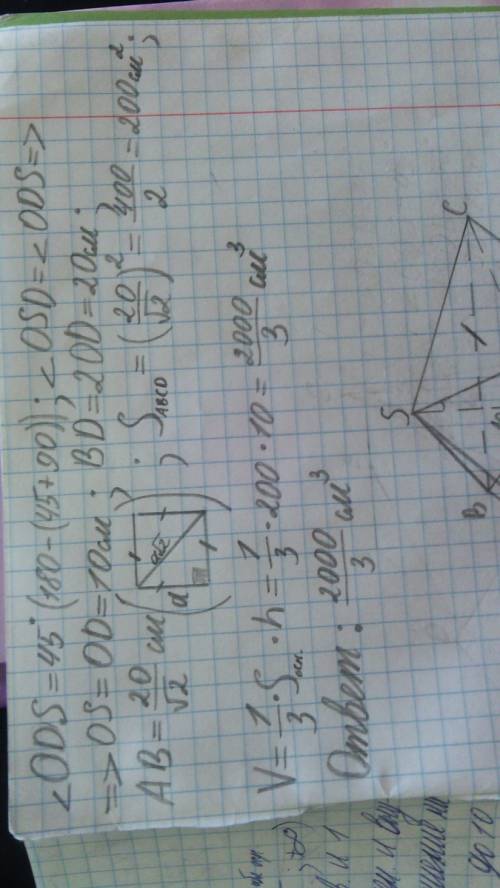 <ODS = 45° (180-(45+90)); <OSD = <ODS =>
=> OS = OD = 10см; BD = 2OD = 20см;
AB = 20/√2 см (a a√2); S_ABCD = (20/√2)² = 400/2 = 200см²;
V = 1/3 · S_осн. · h = 1/3 · 200 · 10 = 2000/3 см³
Ответ: 2000/3 см³
S
C
B
и 1
до 10